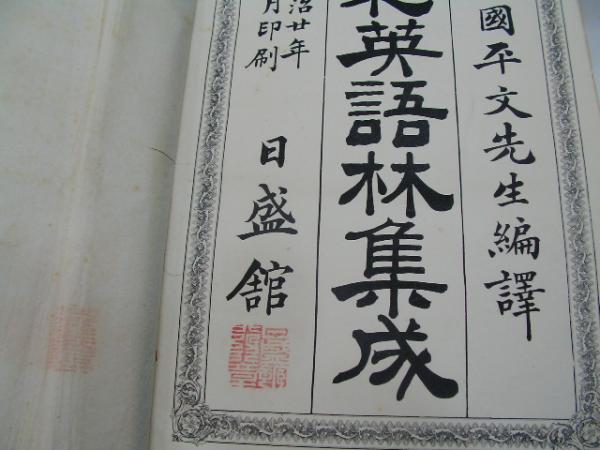 國平文先生編譯
英語林集成
治廿年
月印刷
日盛舘